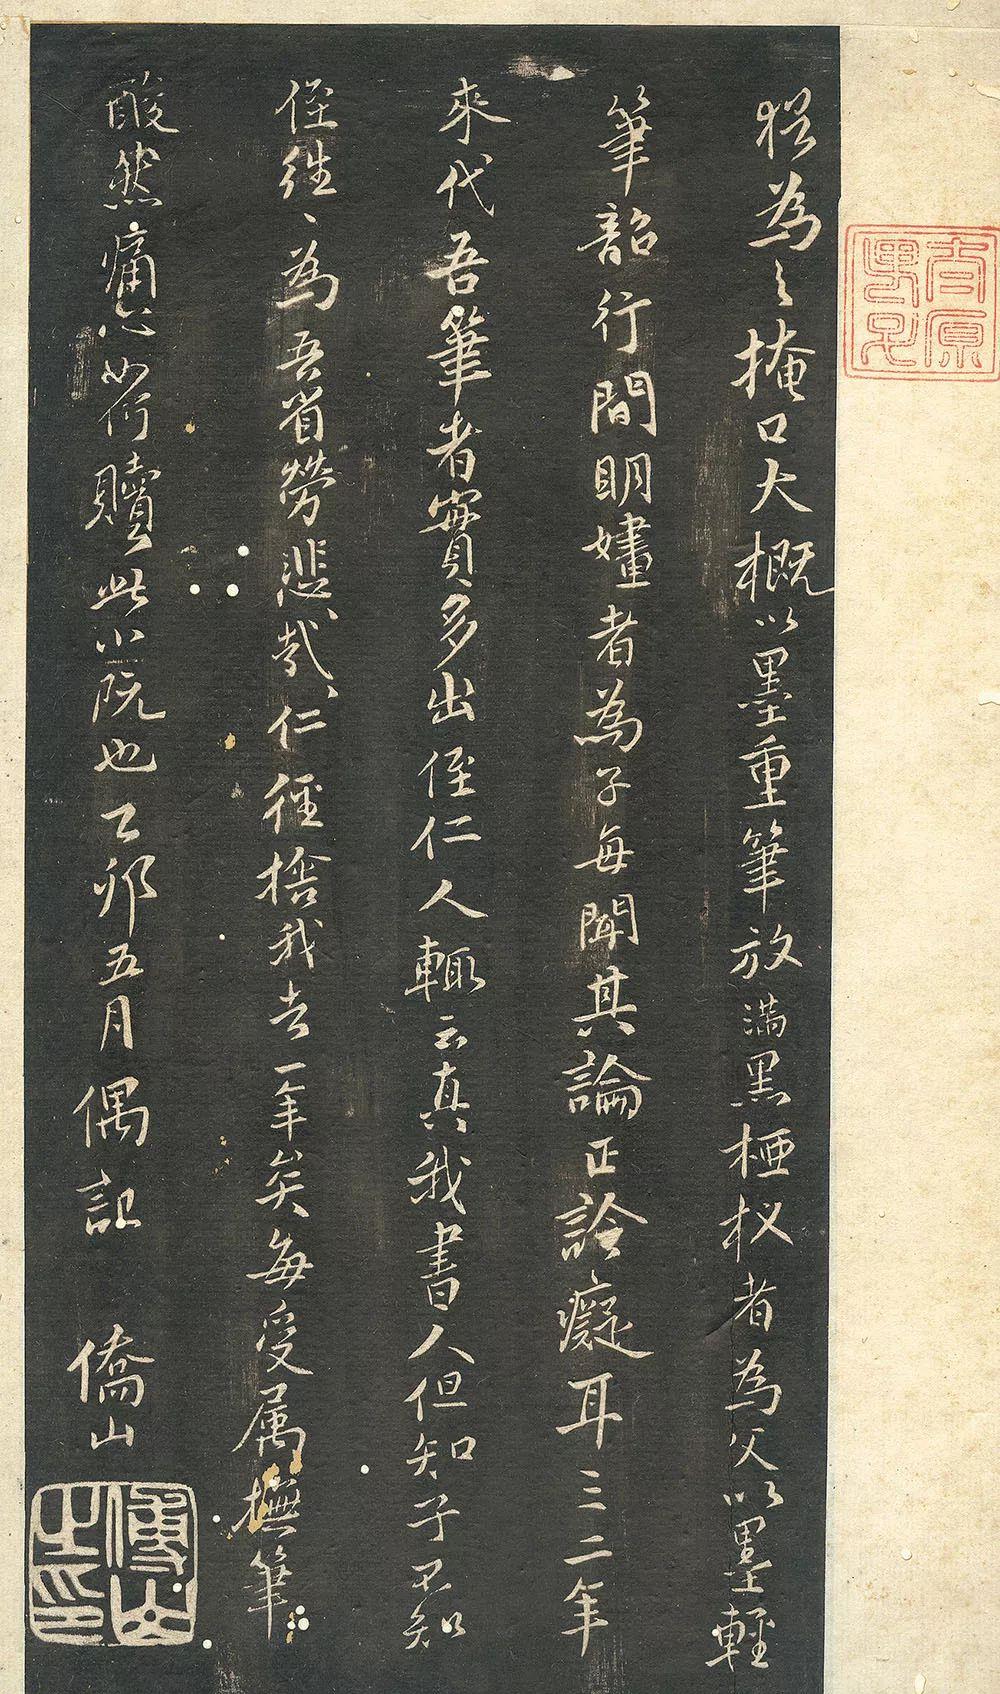 太原男子
猶為之掩口大概以墨重筆放滿黑椏杈者為父以墨輕
筆韶行間明嫿者為子每聞其論正詅癡耳三二年
來代吾筆者實多出侄仁人輒云真我書人但知子不知
侄往〻為吾省勞悲哉仁徑捨我去一年矣每受属撫筆
酸然痛心如何贖此小阮也乙卯五月偶記 僑山
傅山之印